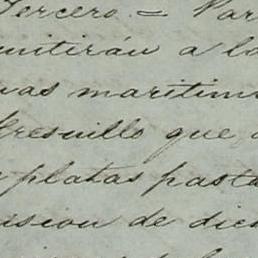 Tercero. = Par
mitirán a lo
vas maritim
Fresnillo que
platas pasta
usion de dic